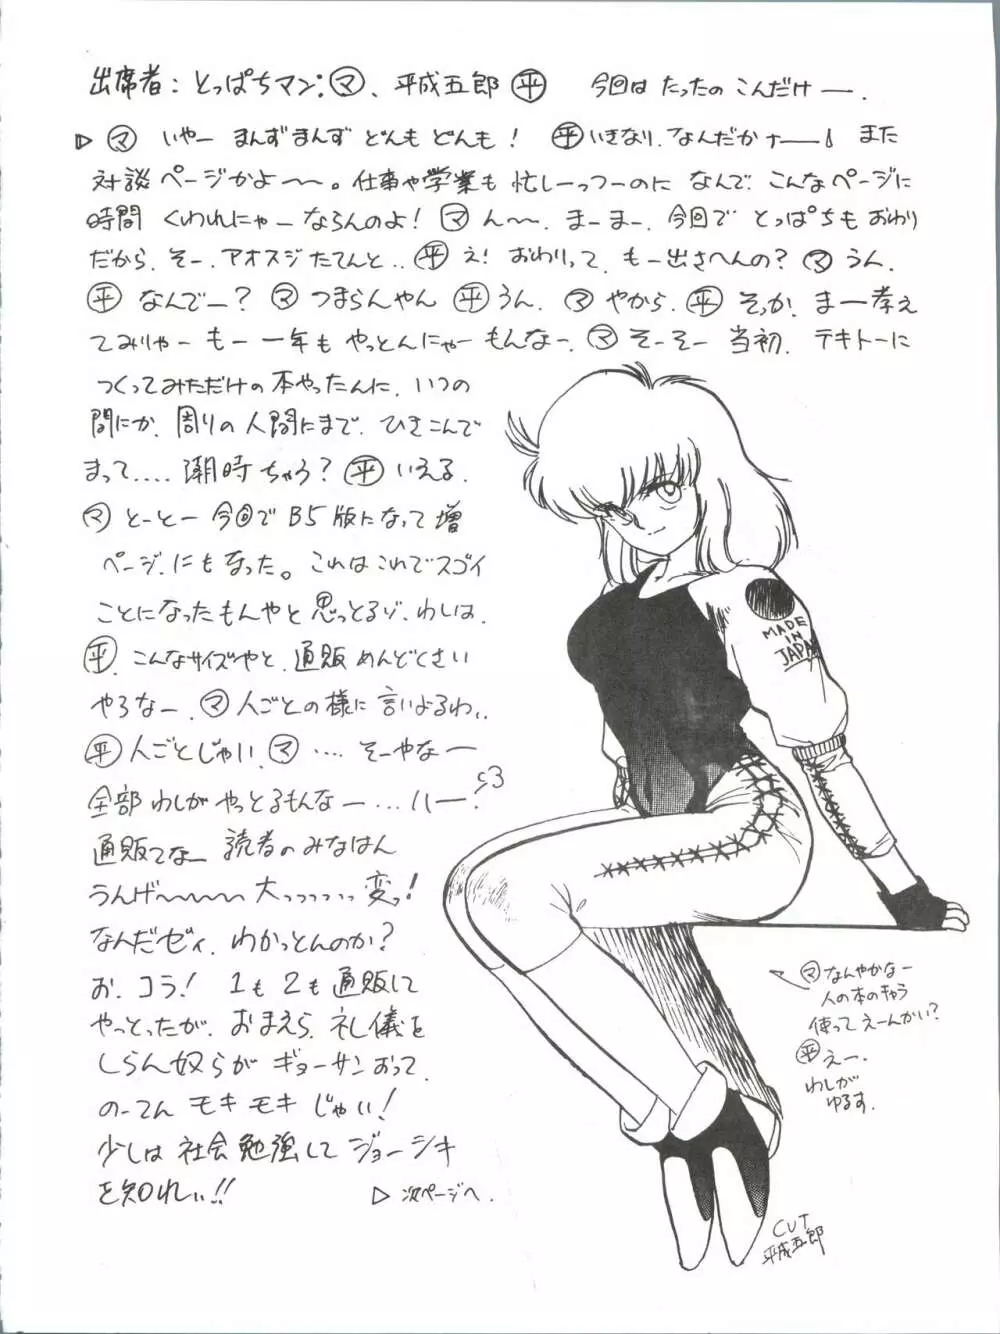 出席者：とっぱちマン：㋮、平成五郎㊥　今回は たったの こんだけー．
▷ ㋮ いやー まんずまんず どんも どんも！ ㊥いきなり、なんだかナー！ また
対談ページかよ〜〜。仕事や学業も忙しーっつーのに なんで、こんなページに
時間 くわれにゃーならんのよ！ ㋮ん〜〜．まーまー．今回で とっぱちもおわり
だから、そー、アオスジたてんと．． ㊥え！おわりって、もー出さへんの？ ㋮うん．
㊥なんでー？ ㋮つまらんやん ㊥うん． ㋮やから． ㊥そっか．まー考え
てみりゃー もー一年も やっとんにゃーもんなー． ㋮そーそー 当初、テキトーに
つくってみただけの本やったんに、いつの
間にか、周りの人間にまで、ひきこんで
まって．．．．潮時ちゃう？ ㊥いえる．
㋮とーとー今回でB5版になって増
ページ、にもなった。これはこれでスゴイ
ことになったもんやと、思っとるゾ、わしは．
㊥、こんなサイズやと、通販めんどくさい
やろなー． ㋮人ごとの様に言いよるわぃ．
㊥人ごとじゃい． ㋮．．．．そーやなー
全部わしがやっとるもんなー．．．ハー．
通販てなー 読者のみなはん
うんげ〜〜〜〜大っっっっっ変っ！
なんだゼィ．わかっとんのか？
お、コラ！ 1も2も通販して
やっとったが、おまえら、礼儀を
しらん奴らが ギョーサンおって、
のーてん モキモキじゃい！
少しは 社会勉強して ジョーシキ
を知れぃ!!
▷ 次ページへ．
MADE
IN
JAPAN
㋮なんやかなー
人の本のキャラ
使って えーんかい？
㊥えー．
わしが
ゆるす．
CUT
平成五郎